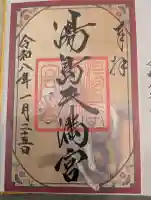 奉拝
湯島天満宮
令和八年一月二十三日